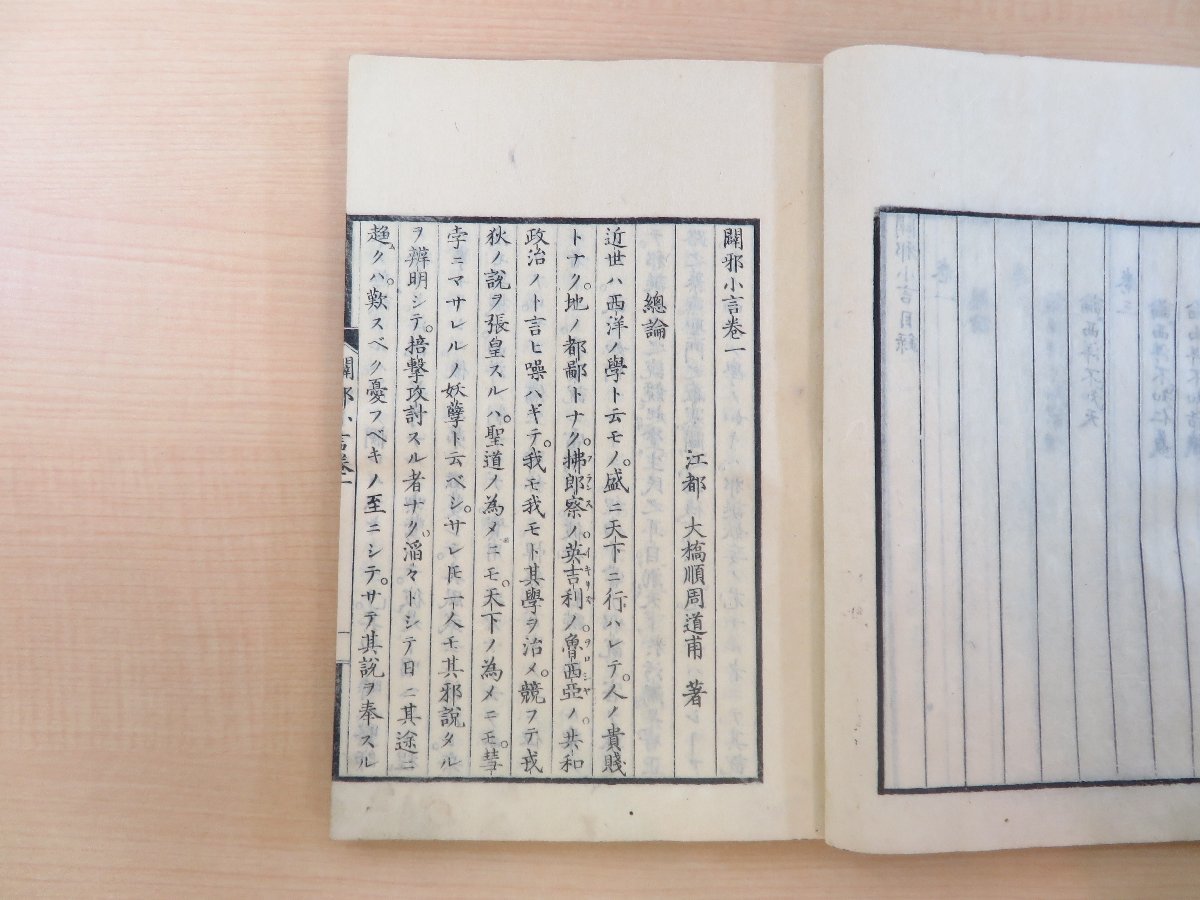 闢邪小言卷一
江都 大橋順周道甫 著
總論
近世ハ西洋ノ學ト云モノ。盛ニ天下ニ行ハレテ。人ノ貴賤
トナク。地ノ都鄙トナク。拂郎察ノ。英吉利ノ。魯西亞ノ。共和
政治ノト言ヒ噪ハギテ。我モ我モト其學ヲ治メ。競フテ戎
狄ノ說ヲ張皇スルハ。聖道ノ為メニモ。天下ノ為メニモ。彗
孛ニマサレルノ妖孽ト云ベシ。サレ𪜈一人モ其邪說タル
ヲ辨明シテ。掊擊攻討スル者ナク。滔々トシテ日ニ其途ニ
趨クハ。歎スベク憂フベキノ至ニシテ。サテ其說ヲ奉スル
闢邪小言卷一
一